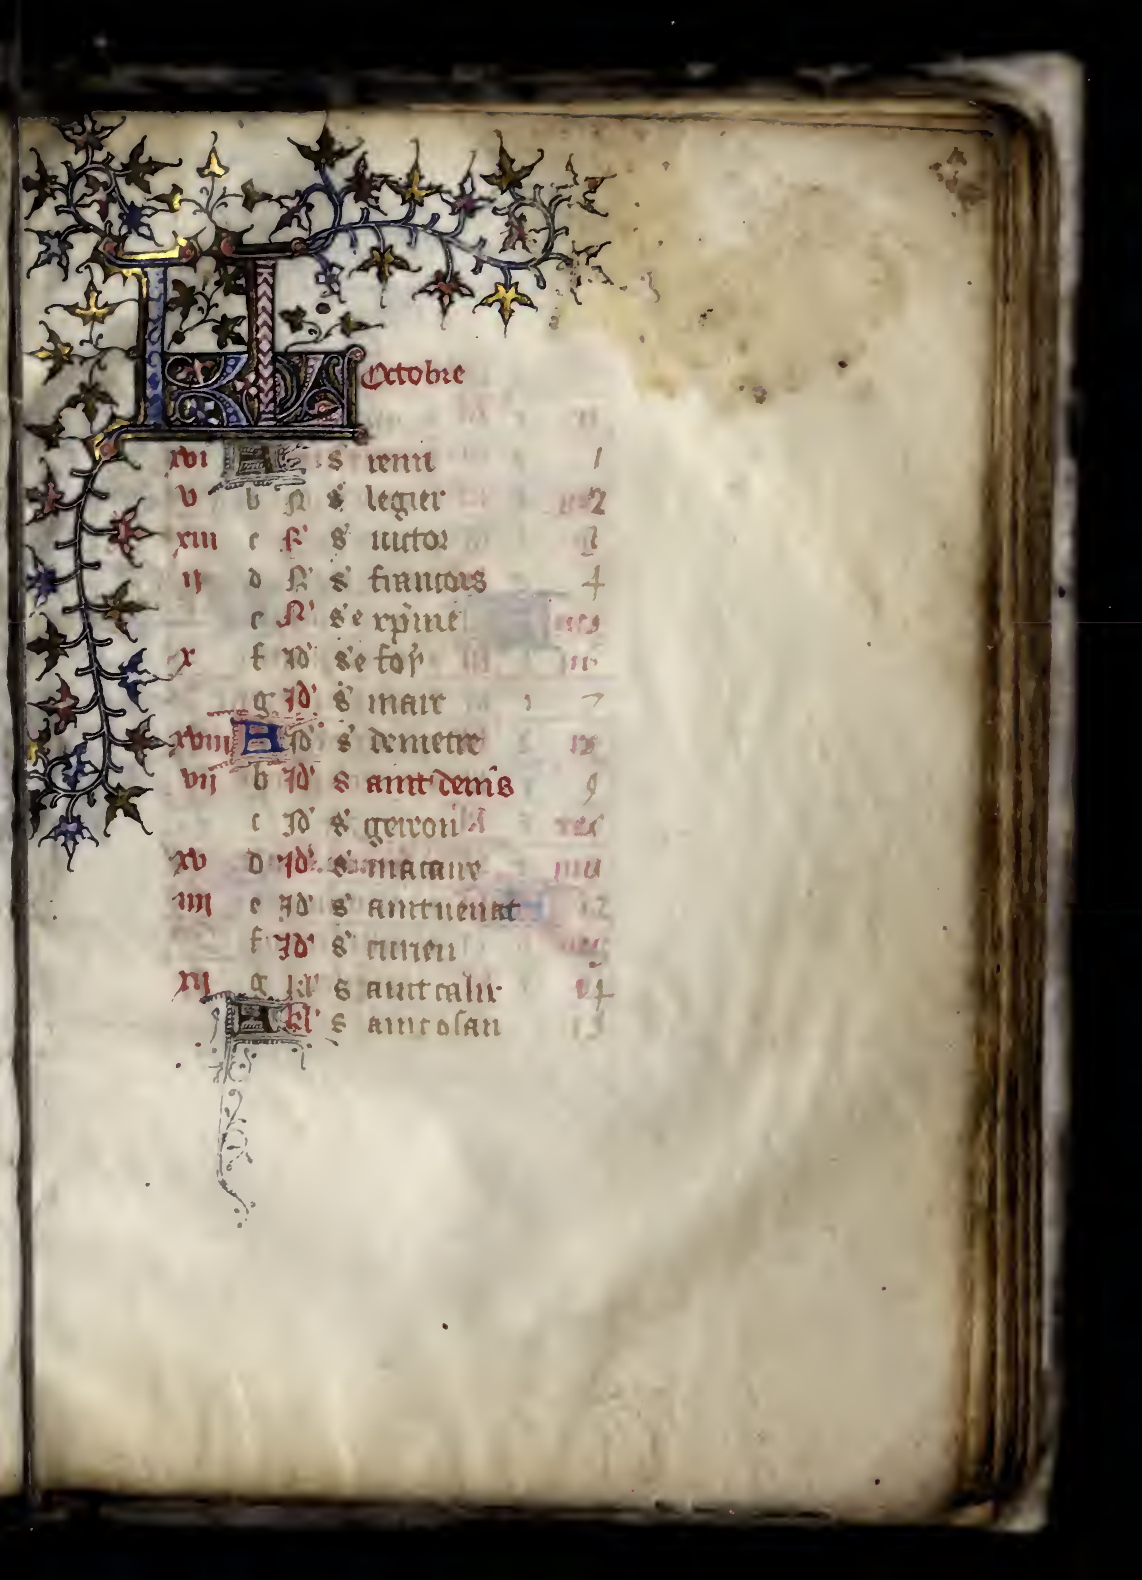 KL Octobre
xvi A s' remi 1
v b N s' legier 2
xiii c N' s' uictor 3
ii d N' s' francois 4
e N' s'e xp̄ine
x f Id' s'e foy
g Id' s' marc 7
xviii A Id' s' demetre
vii b Id' s aint denis 9
c Id' s' gereon
xv d Id' s' macaire
iiii e Id' s' aint uenat 12
f Id' s'
xii g kl' s aint calix 14
A kl' s aint osan 15